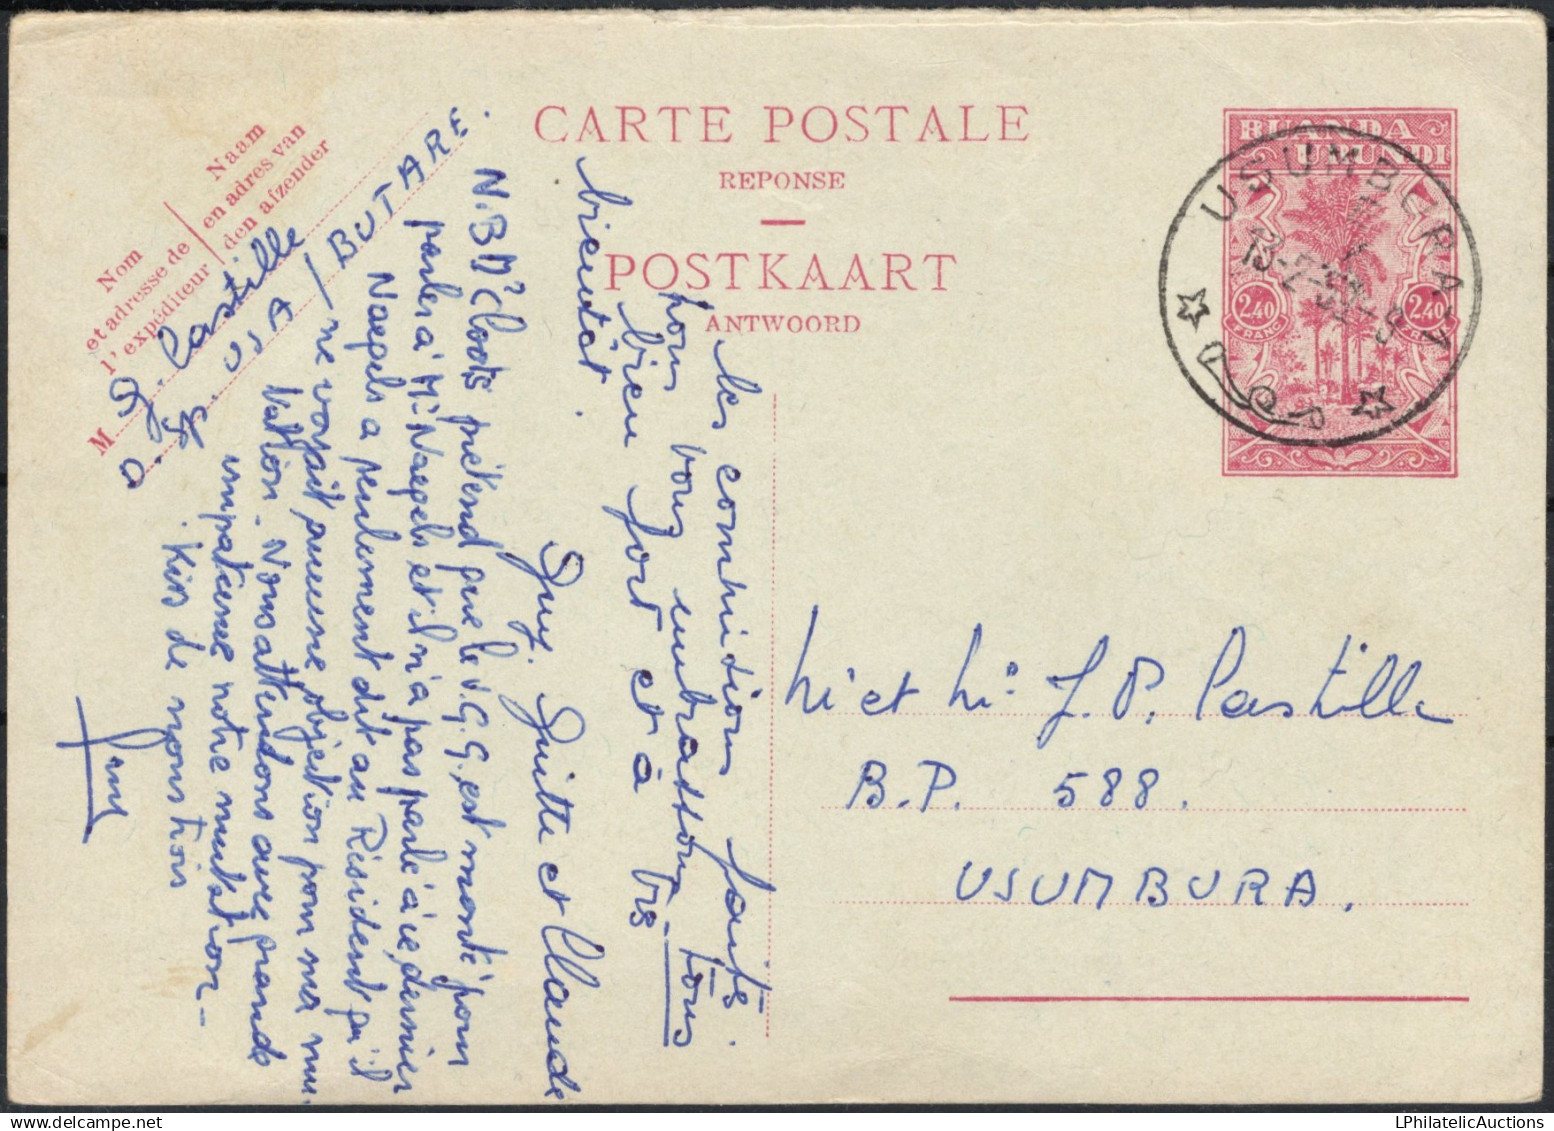 CARTE POSTALE
REPONSE
POSTKAART
ANTWOORD
Naam
en adres van
den afzender
Nom
et adresse de
l'expéditeur
M
G. Castille
BUTARE.
RUANDA
URUNDI
2.40 2.40
FRANC
USUMBURA - 1
13-2-
les commissions faites
nous vous embrassons tous
bien fort et à très
bientôt.
Guy, Guitte et Claude
N.B Mr Cloots prétend que le V.G.G. est monté pour
parler à Mr Naegels et il n'a pas parlé à ce dernier
Naegels a seulement dit au Résident qu'il
ne voyait aucune objection pour ma mu-
tation. Nous attendons avec grande
impatience notre mutation -
Kiss de nous trois
Guy
Mr et Me J.P. Castille
B.P. 588.
USUMBURA.
LPhilatelicAuctions